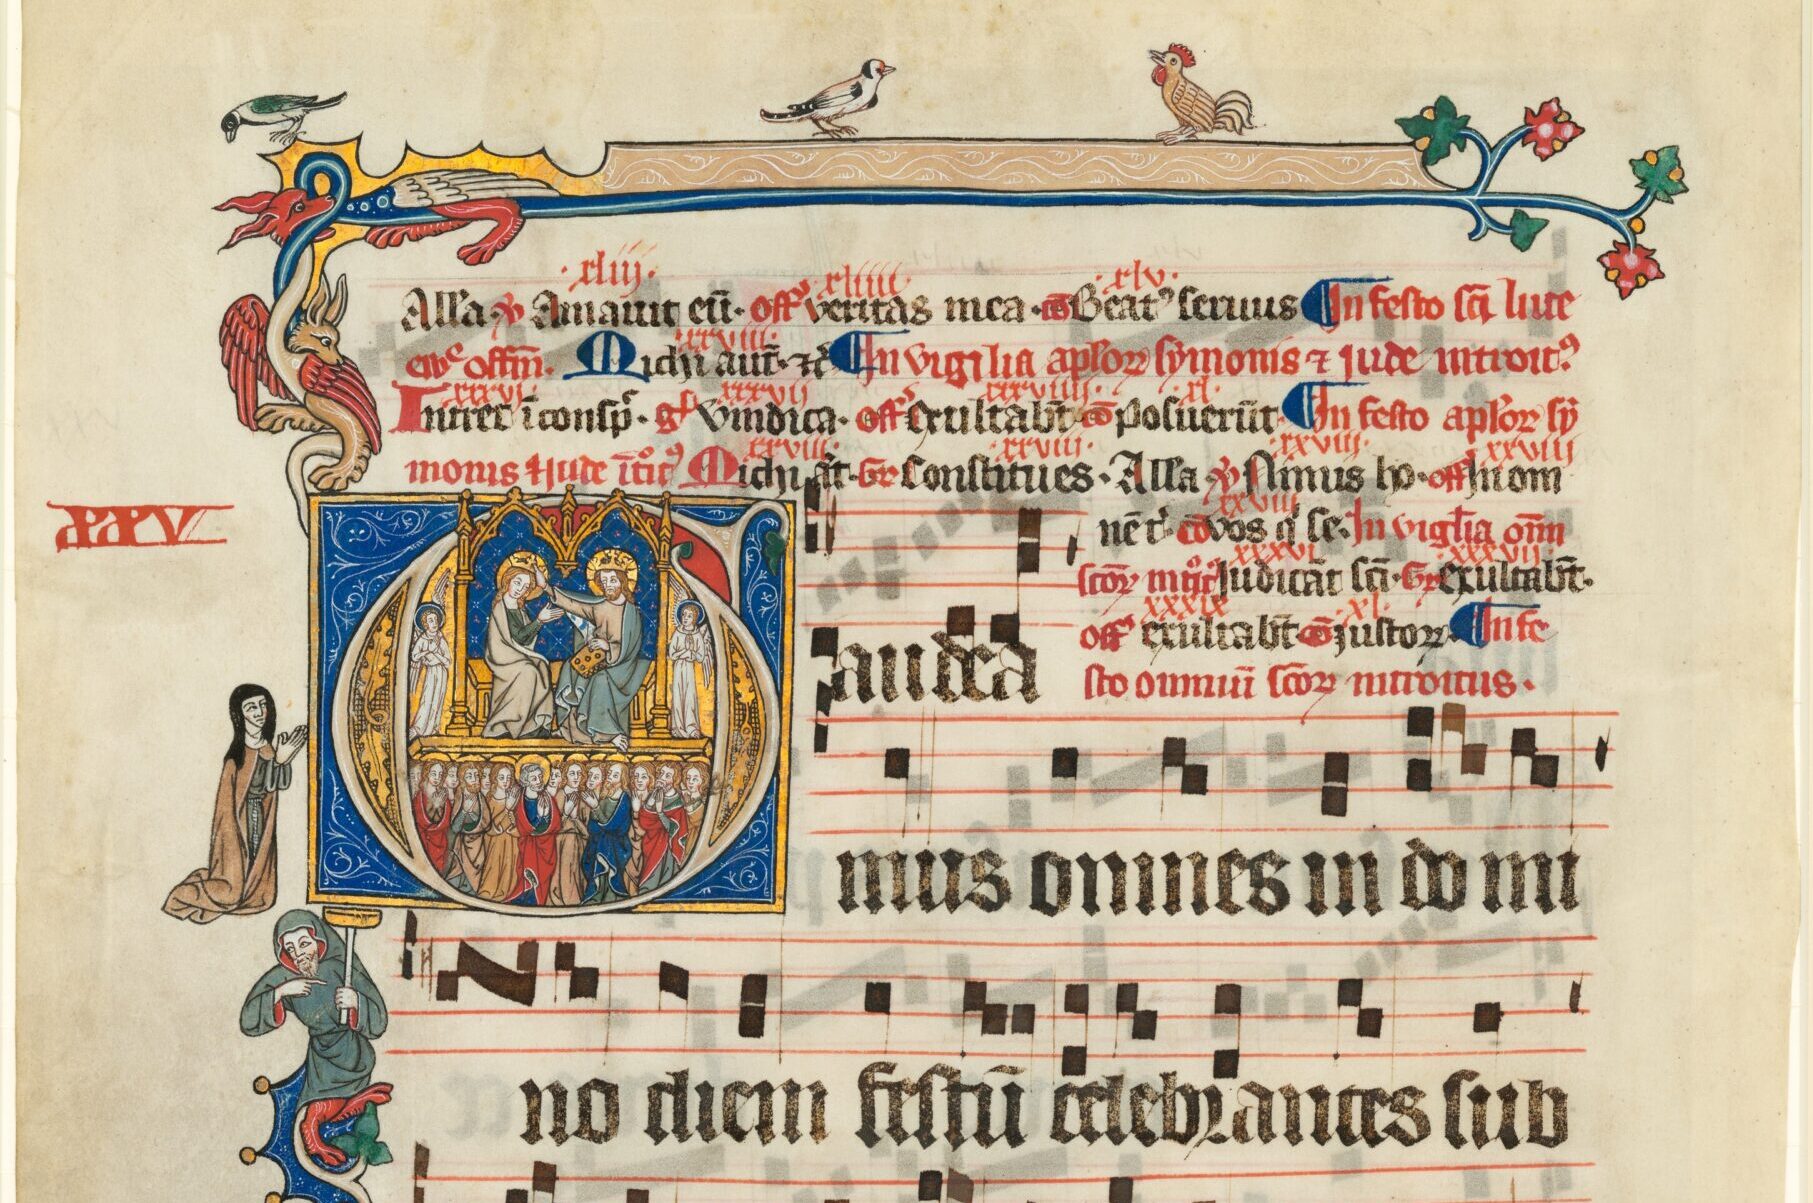 .xliij. xliiij xlv.
Alla ℣ Amauit eū. off veritas mea. cō Beatꝰ seruus ¶ In festo scī luce
xxviij.
ewᵉ offm̄. Michi aut̄. ⁊c̄ ¶ In vigilia aplor̄ symonis ⁊ iude introitꝰ
xxxvi xxxvij xxxviiij. xl.
Intret ī consp̄. gr̄ Vindica. off Exultab̄t cō Posuerūt ¶ In festo aplor̄ sy
xxviij. xxviij. xxviij. xxviij
monis ⁊ iude ītꝰ Michi āt. Gr̄ Constitues. Alla ℣ Nimis ho. off In om
xxviij
nē t̄. cō Vos q̄ se. In vigl̄ia om̄
xxxvi xxxvij.
xxv
scōꝝ Iudicāt scī. Gr̄ Exultab̄t.
xxxix xl.
off exultab̄t cō iustoꝝ ¶ In fe
sto omniū scōꝝ introitus.
Gaudea
mus omnes in do mi
no diem festū celebrantes sub